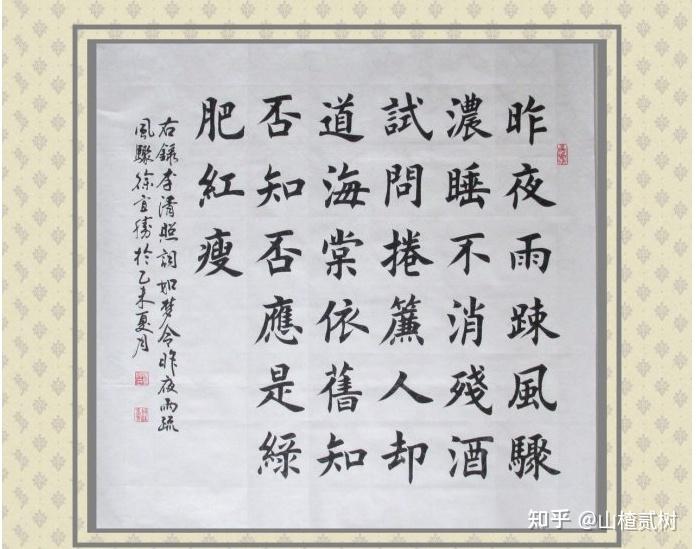 昨夜雨踈風驟
濃睡不消殘酒
試問捲簾人却
道海棠依舊知
否知否應是綠
肥紅瘦
右錄李清照詞如梦令昨夜雨疏
風驟徐宜勝於乙未夏月
知乎 @山楂贰树